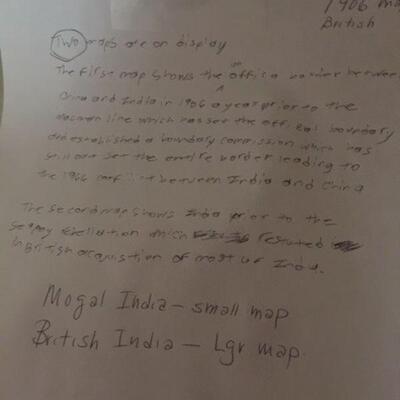 1906 map
British
Two maps are on display
The first map shows the un offica border between
China and India in 1906 a year prior to the
line which has set the offical boundary
and established a boundary commission which has
still not set the entire border leading to
the 1966 conflict between India and China
The second map shows India prior to the
Sepoy Rebellation which resulted
in British acquistion of most of India.
Mogal India – small map
British India – Lgr map.